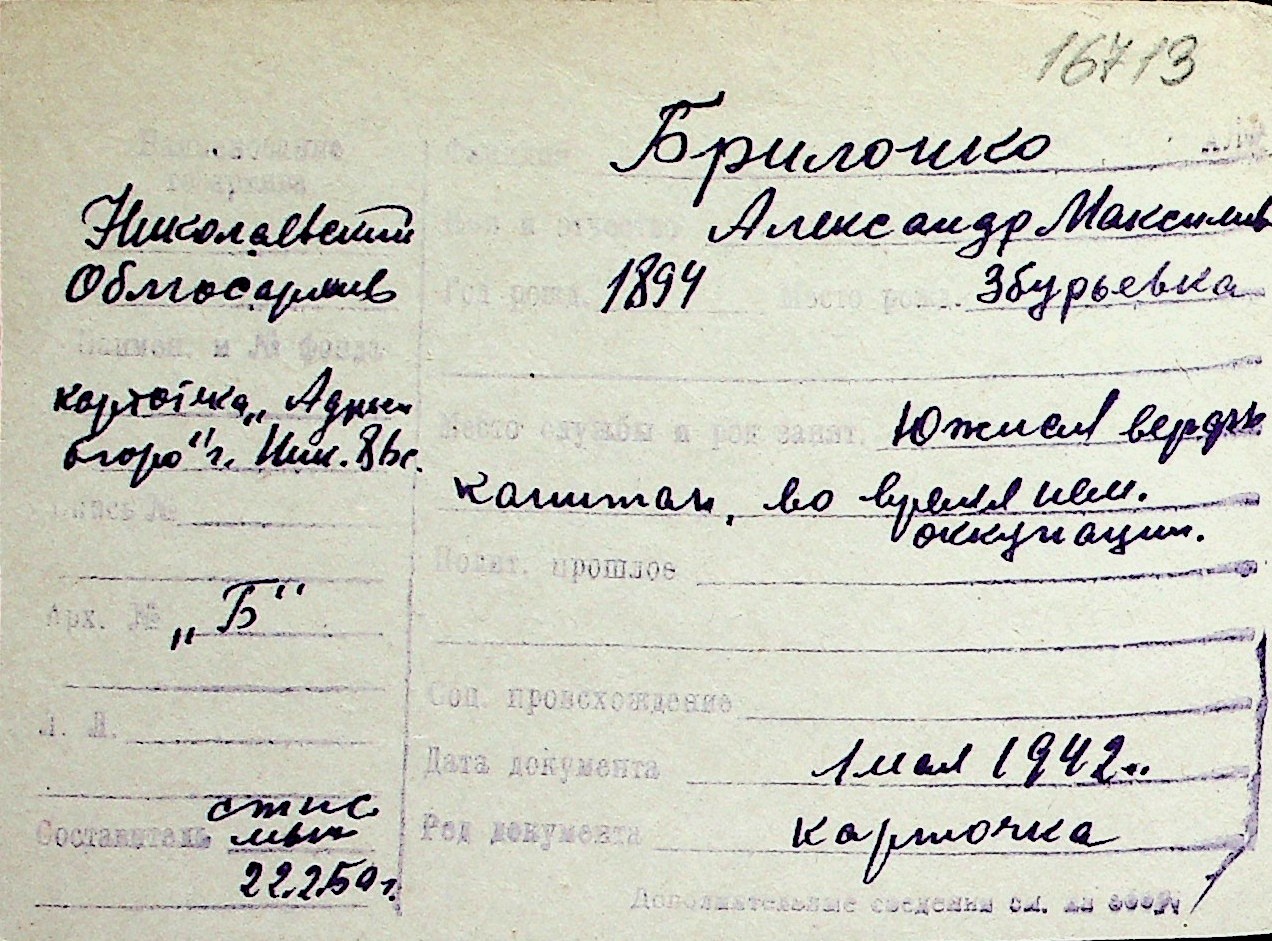 16713
Наименование
госархива
Николаевский
Облгосархив
Наимен. и № фонда
картотека „Адресн
бюро" г. Ник.
Опись №
Арх. № „Б"
Л. Л.
Составитель
22.2.50 г.
Фамилия Брилонко
Имя и отчество Александр Максимов
Год рожд. 1894 Место рожд. Збурьевка
Место службы и род занят. Южная верфь
капитан, во время нем.
оккупации.
Полит. прошлое
Соц. происхождение
Дата документа 1 мая 1942 г.
Род документа карточка
Дополнительные сведения см. на обор.